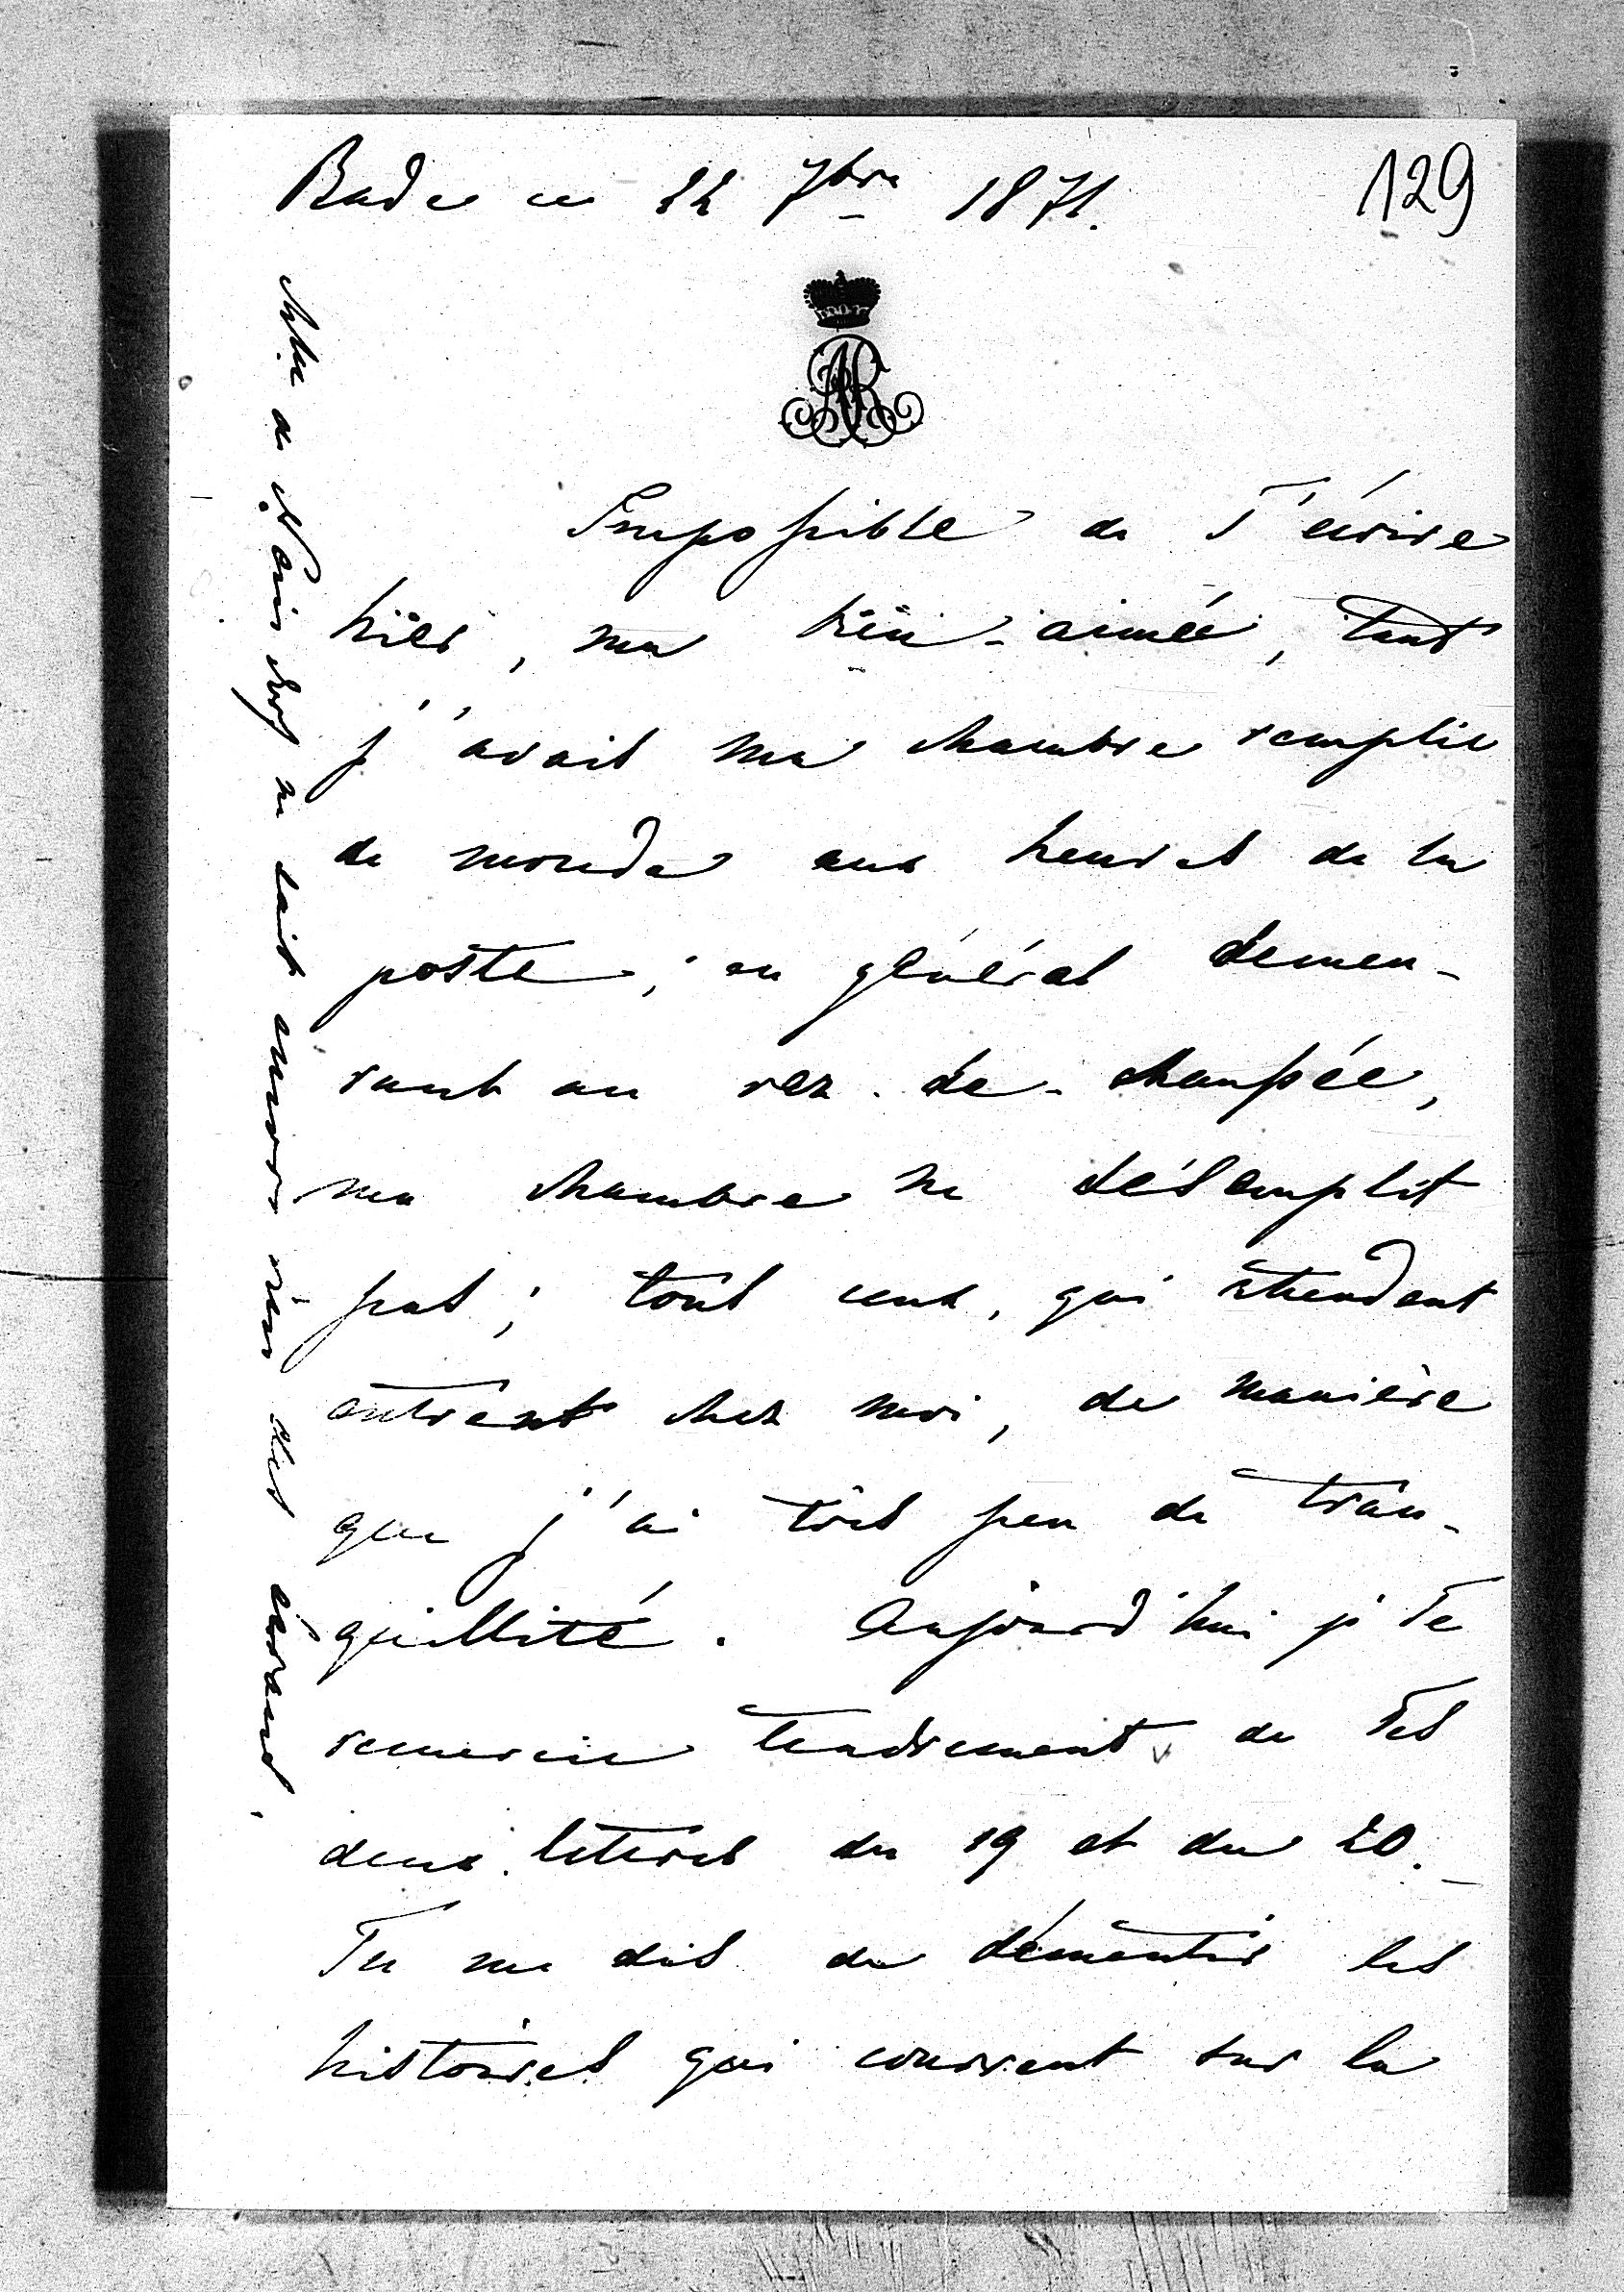 Bade ce 22 7bre 1871.
129
AR
Impossible de T'écrire
hier, ma bien-aimée, tant
j'avais ma chambre remplie
de monde aux heures de la
poste; en général demeu-
rant au rez-de-chaussée,
ma chambre ne désemplit
pas; tous ceux, qui attendent
entrent chez moi, de manière
que j'ai très peu de tran-
quillité. Aujourd'hui je Te
remercie tendrement de Tes
deux lettres du 19 et du 20. _
Tu me dis de démentir les
histoires qui courrent sur la
de ne sait encore rien des